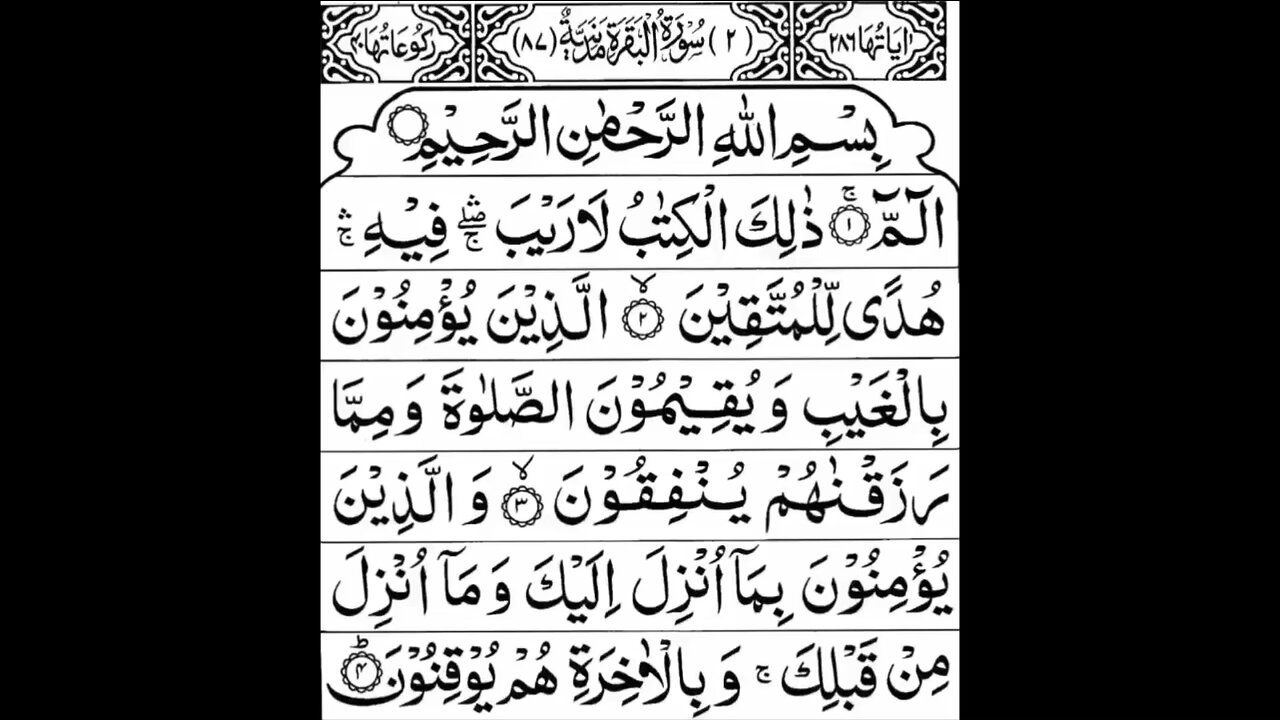 اٰيَاتُهَا ٢٨٦ (٢) سُوْرَةُ الْبَقَرَةِ مَدَنِيَّةٌ (٨٧) رُكُوْعَاتُهَا ٤٠
بِسْمِ اللّٰهِ الرَّحْمٰنِ الرَّحِيْمِ
الٓمّٓ ۚ ﴿١﴾ ذٰلِكَ الْكِتٰبُ لَا رَيْبَ ۛۖۚ فِيْهِ ۛۚ
هُدًى لِّلْمُتَّقِيْنَ ۙ ﴿٢﴾ الَّذِيْنَ يُؤْمِنُوْنَ
بِالْغَيْبِ وَ يُقِيْمُوْنَ الصَّلٰوةَ وَ مِمَّا
رَزَقْنٰهُمْ يُنْفِقُوْنَ ۙ ﴿٣﴾ وَ الَّذِيْنَ
يُؤْمِنُوْنَ بِمَآ اُنْزِلَ اِلَيْكَ وَ مَآ اُنْزِلَ
مِنْ قَبْلِكَ ۚ وَ بِالْاٰخِرَةِ هُمْ يُوْقِنُوْنَ ؕ ﴿٤﴾